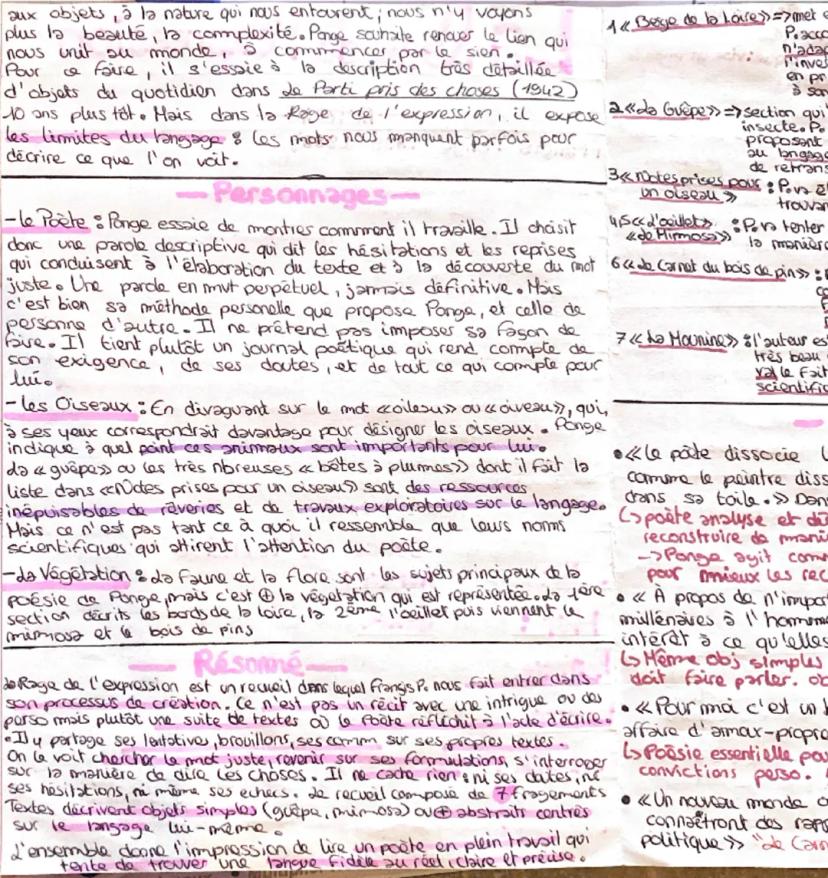 aux objets, à la nature qui nous entourent ; nous n'y voyons
plus la beauté, la complexité. Ponge souhaite renouer le lien qui
nous unit au monde, à commencer par le sien.
Pour ce faire, il s'essaie à la description très détaillée
d'objets du quotidien dans Le Parti pris des choses (1942)
10 ans plus tôt. Mais dans la Rage de l'expression, il expose
les limites du langage : les mots nous manquent parfois pour
décrire ce que l'on voit.
— Personnages —
- le Poète : Ponge essaie de montrer comment il travaille. Il choisit
donc une parole descriptive qui dit les hésitations et les reprises
qui conduisent à l'élaboration du texte et à la découverte du mot
juste. Une parole en mvt perpétuel, jamais définitive. Mais
c'est bien sa méthode personelle que propose Ponge, et celle de
personne d'autre. Il ne prétend pas imposer sa façon de
faire. Il tient plutôt un journal poétique qui rend compte de
son exigence, de ses doutes, et de tout ce qui compte pour
lui.
- les Oiseaux : En divaguant sur le mot «oileau» ou «oiveau», qui,
à ses yeux correspondrait davantage pour désigner les oiseaux. Ponge
indique à quel point ces animaux sont importants pour lui.
La «guêpe» ou les très nbreuses «bêtes à plumes» dont il fait la
liste dans «Notes prises pour un oiseau» sont des ressources
inépuisables de rêveries et de travaux exploratoires sur le langage.
Mais ce n'est pas tant ce à quoi il ressemble que leurs noms
scientifiques qui attirent l'attention du poète.
- La Végétation : La faune et la flore sont les sujets principaux de la
poésie de Ponge, mais c'est ⊕ la végétation qui est représentée. La 1ère
section décrit les bords de la Loire, la 2ème l'oeillet puis viennent le
mimosa et le bois de pins
— Résumé —
La Rage de l'expression est un recueil dans lequel Frangis P. nous fait entrer dans
son processus de création. Ce n'est pas un récit avec une intrigue ou des
perso mais plutôt une suite de textes où le Poète réfléchit à l'acte d'écrire.
• Il y partage ses tentatives, brouillons, ses comm sur ses propres textes.
On le voit chercher le mot juste, revenir sur ses formulations, s'interroger
sur la manière de dire les choses. Il ne cache rien : ni ses doutes, ni
ses hésitations, ni même ses echecs. Le recueil composé de 7 fragements
Textes décrivent objets simples (guêpe, mimosa) ou ⊕ abstraits centrés
sur le langage lui-même.
L'ensemble donne l'impression de lire un poète en plein travail qui
tente de trouver une langue fidèle au réel, claire et précise.
1 «Berge de la Loire» => met
P. acc
n'ada
l'inve
en pr
à so
2 «La Guêpe» => section qui
insecte. P.
proposant
au langag
de retrans
3 «Notes prises pour : P. va
un oiseau»
trouva
4,5 «L'oeillet» : P. va tenter
«Le Mimosa» la manière
6 «Le Carnet du bois de pins» :
7 «La Mounine» : l'auteur es
très beau
le fait
scientific
• «Le poète dissocie
comme le peintre diss
dans sa toile.» Dan
↳ poète analyse et
reconstruire de mani
-> Ponge agit com
pour mieux les rec
• «À propos de n'impor
millénaires à l'homm
intérêt à ce qu'elles
↳ Même obj simples
doit faire parler.
• «Pour moi c'est un
affaire d'amour-propre
↳ Poésie essentielle pou
convictions perso.
• «Un nouveau monde o
connaîtront des rapp
politique» "Le Carn